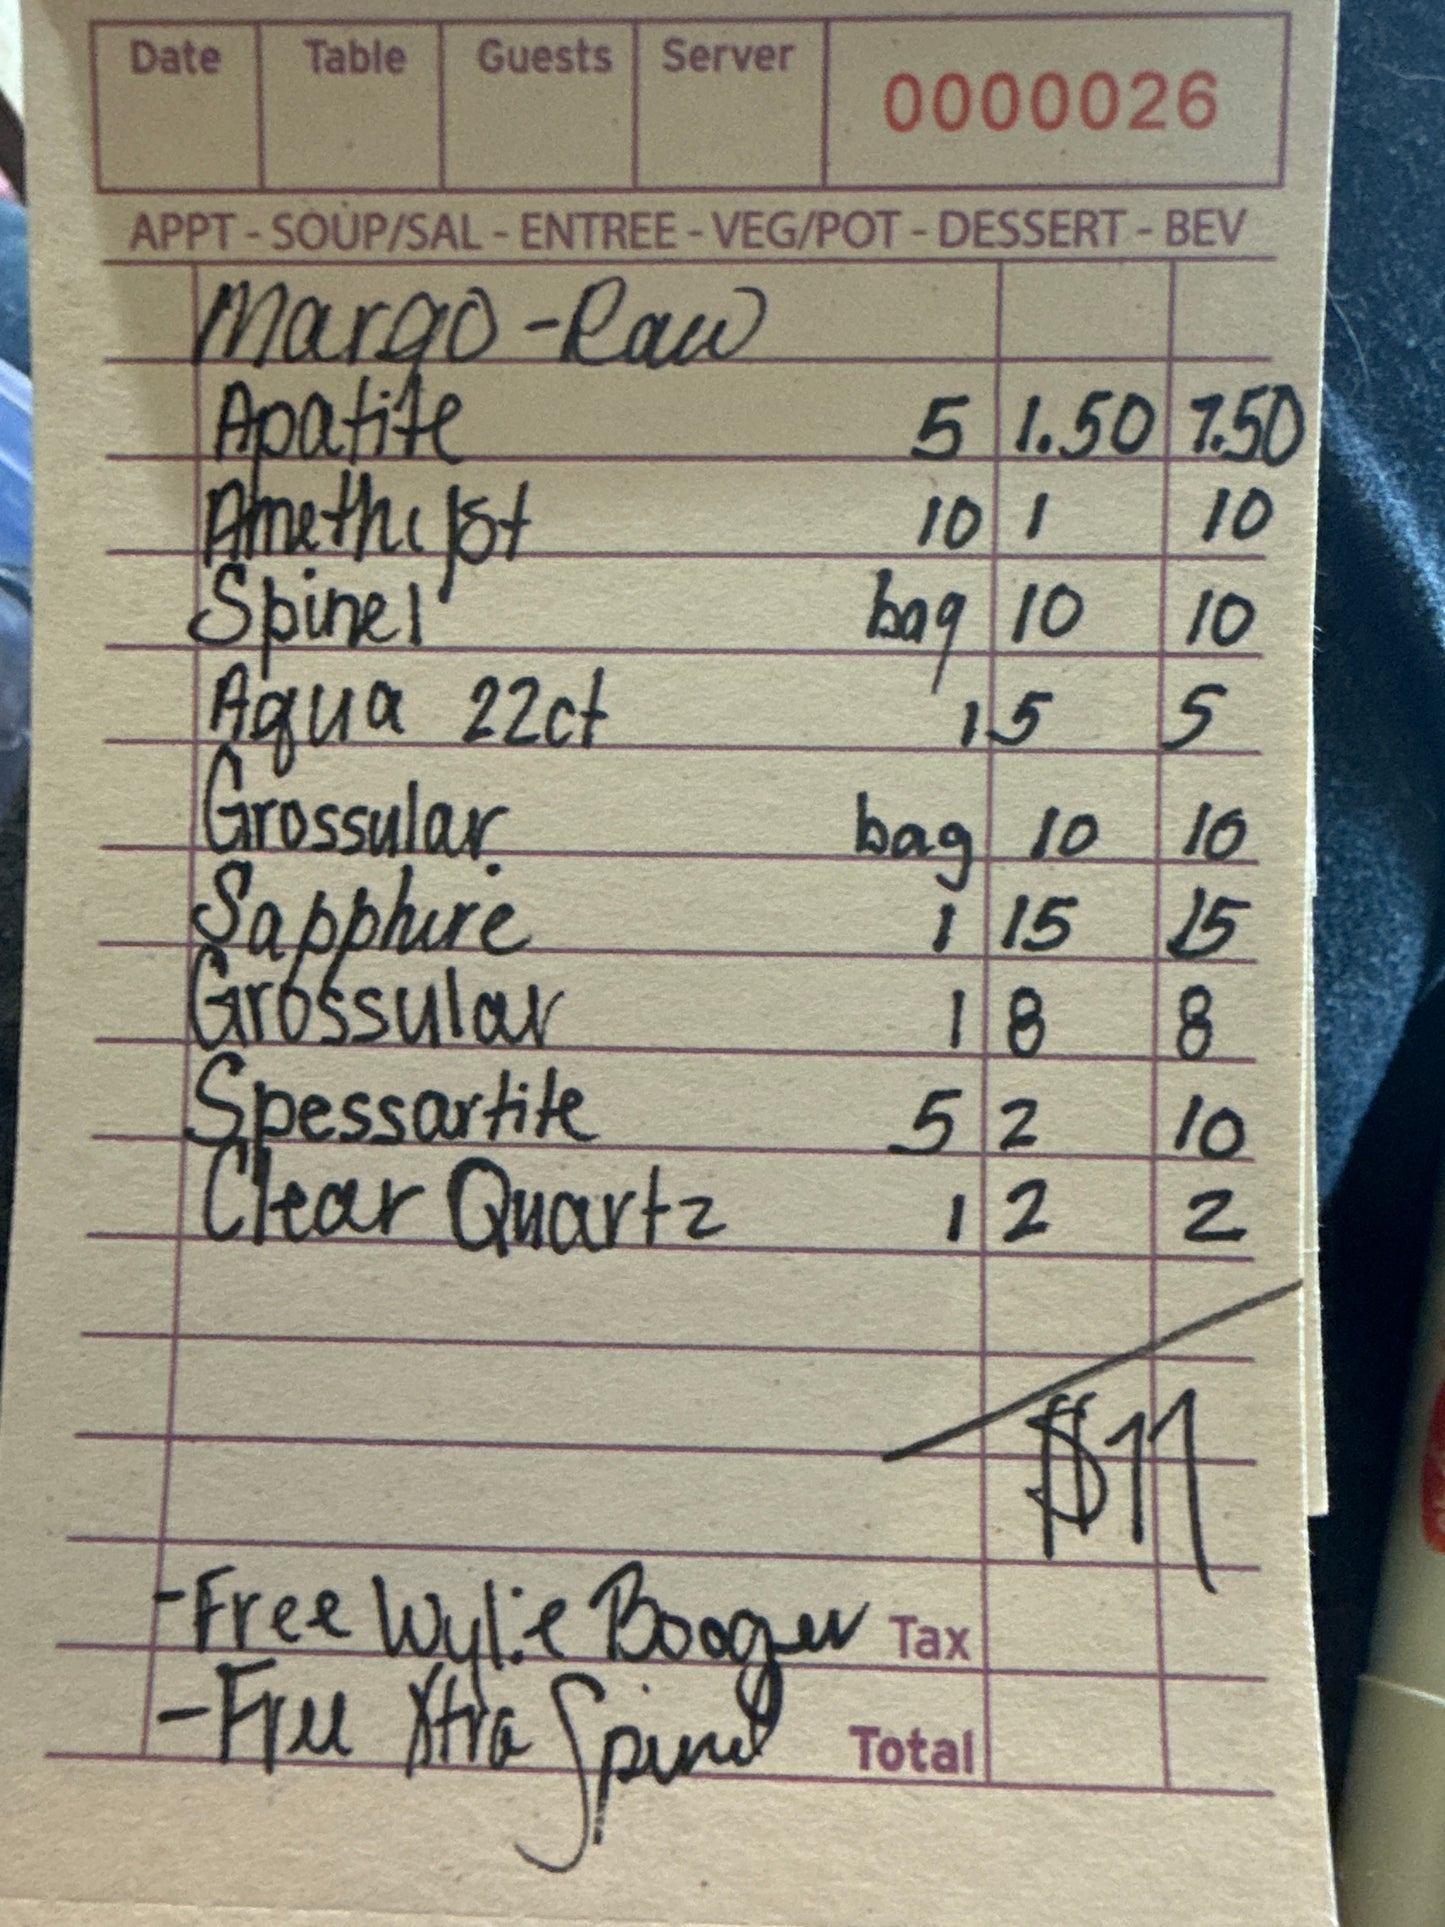 Date Table Guests Server 0000026
APPT - SOUP/SAL - ENTREE - VEG/POT - DESSERT - BEV
Margo - Raw
Apatite 5 1.50 7.50
Amethyst 10 1 10
Spinel bag 10 10
Aqua 22ct 1 5 5
Grossular bag 10 10
Sapphire 1 15 15
Grossular 1 8 8
Spessartite 5 2 10
Clear Quartz 1 2 2
$77
- Free Wylie Booger Tax
- Free Xtra Spinel Total